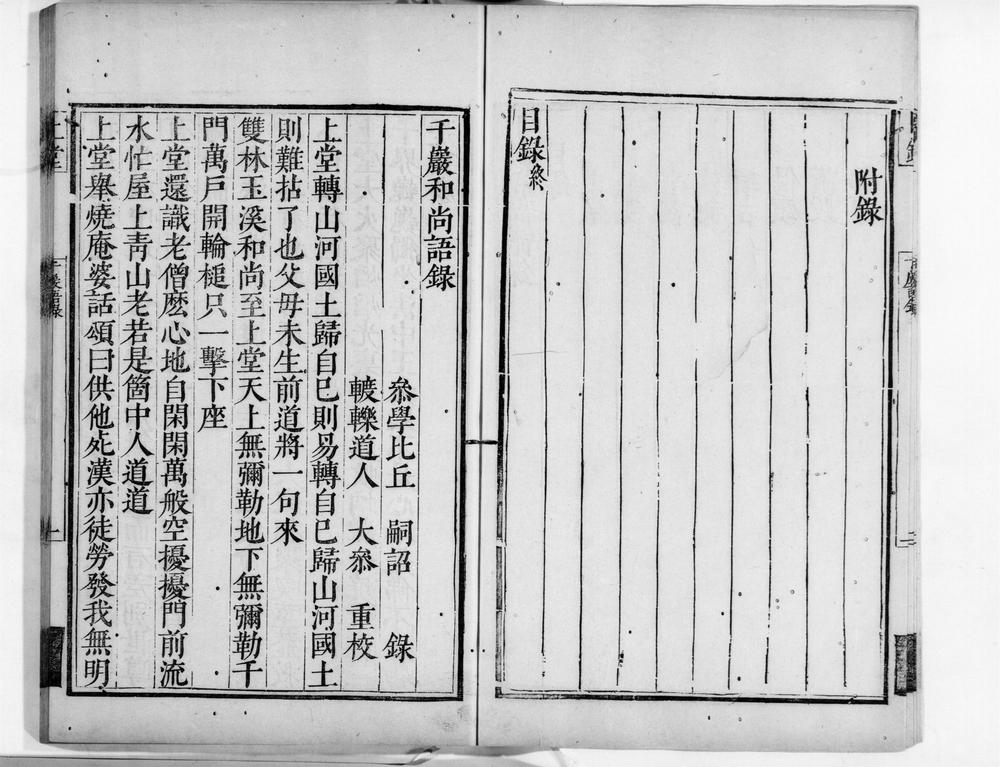 附錄
目錄終
千巖和尚語錄
叅學比丘 嗣詔 錄
䡖轢道人 大叅 重校
上堂轉山河國土歸自己則易轉自己歸山河國土
則難拈了也父母未生前道將一句來
雙林玉溪和尚至上堂天上無彌勒地下無彌勒千
門萬戶開輪槌只一擊下座
上堂還識老僧麽心地自閑閑萬般空擾擾門前流
水忙屋上青山老若是箇中人道道
上堂舉燒庵婆話頌曰供他死漢亦徒勞發我無明
上堂
千巖語錄
一